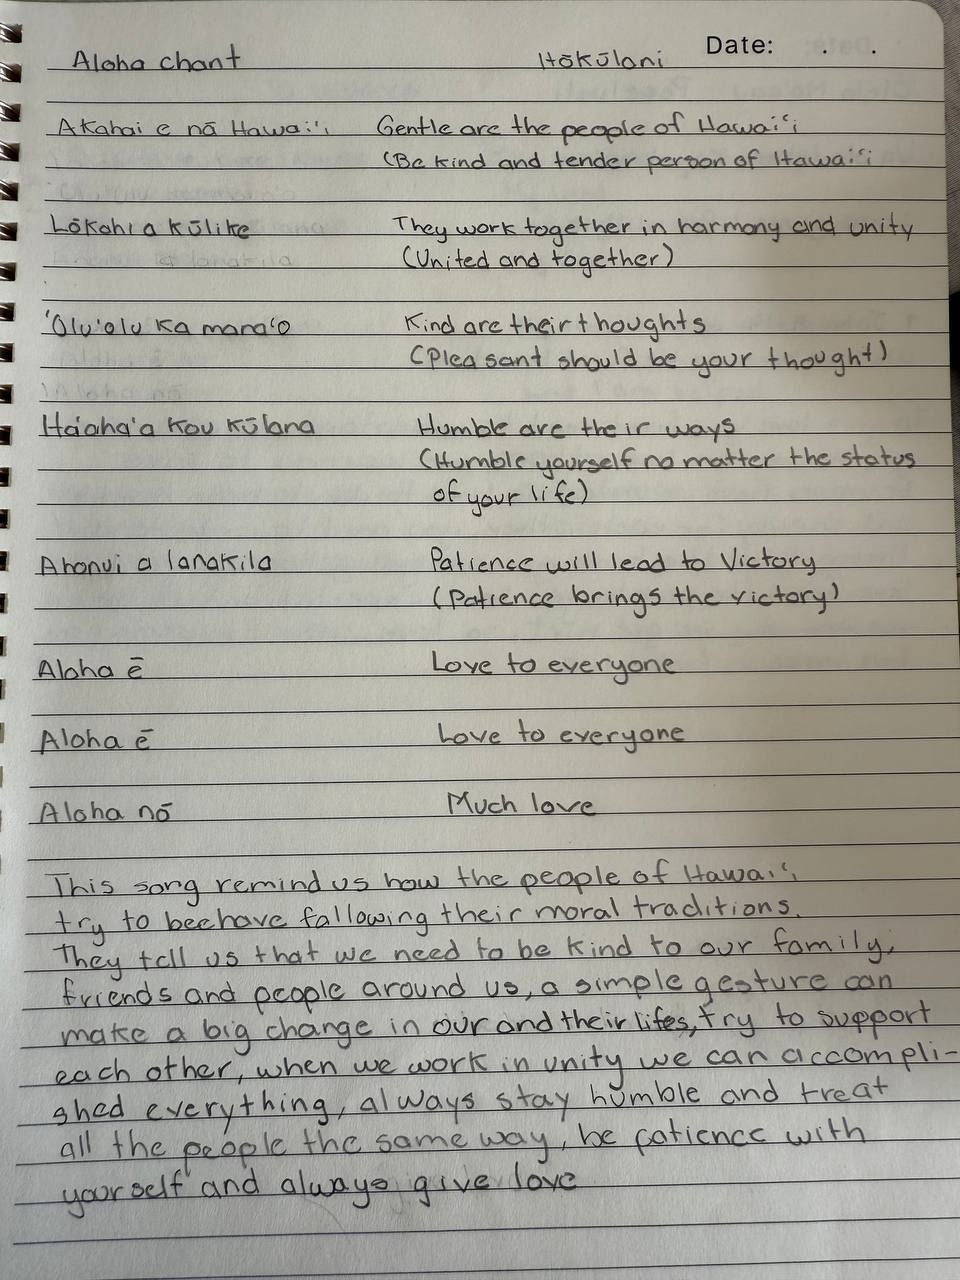 Aloha chant Hōkūlani Date: . .
Akahai e nā Hawai'i Gentle are the people of Hawai'i
(Be kind and tender person of Hawai'i
Lōkahi a kūlike They work together in harmony and unity
(United and together)
'Olu'olu ka mana'o Kind are their thoughts
(Pleasant should be your thought)
Ha'aha'a kou kūlana Humble are their ways
(Humble yourself no matter the status
of your life)
Ahonui a lanakila Patience will lead to Victory
(Patience brings the victory)
Aloha ē Love to everyone
Aloha ē Love to everyone
Aloha nō Much love
This song remind us how the people of Hawai'i
try to beehave fallowing their moral traditions.
They tell us that we need to be kind to our family,
friends and people around us, a simple gesture can
make a big change in our and their lifes, try to support
each other, when we work in unity we can accompli-
shed everything, always stay humble and treat
all the people the same way, be patience with
yourself and always give love